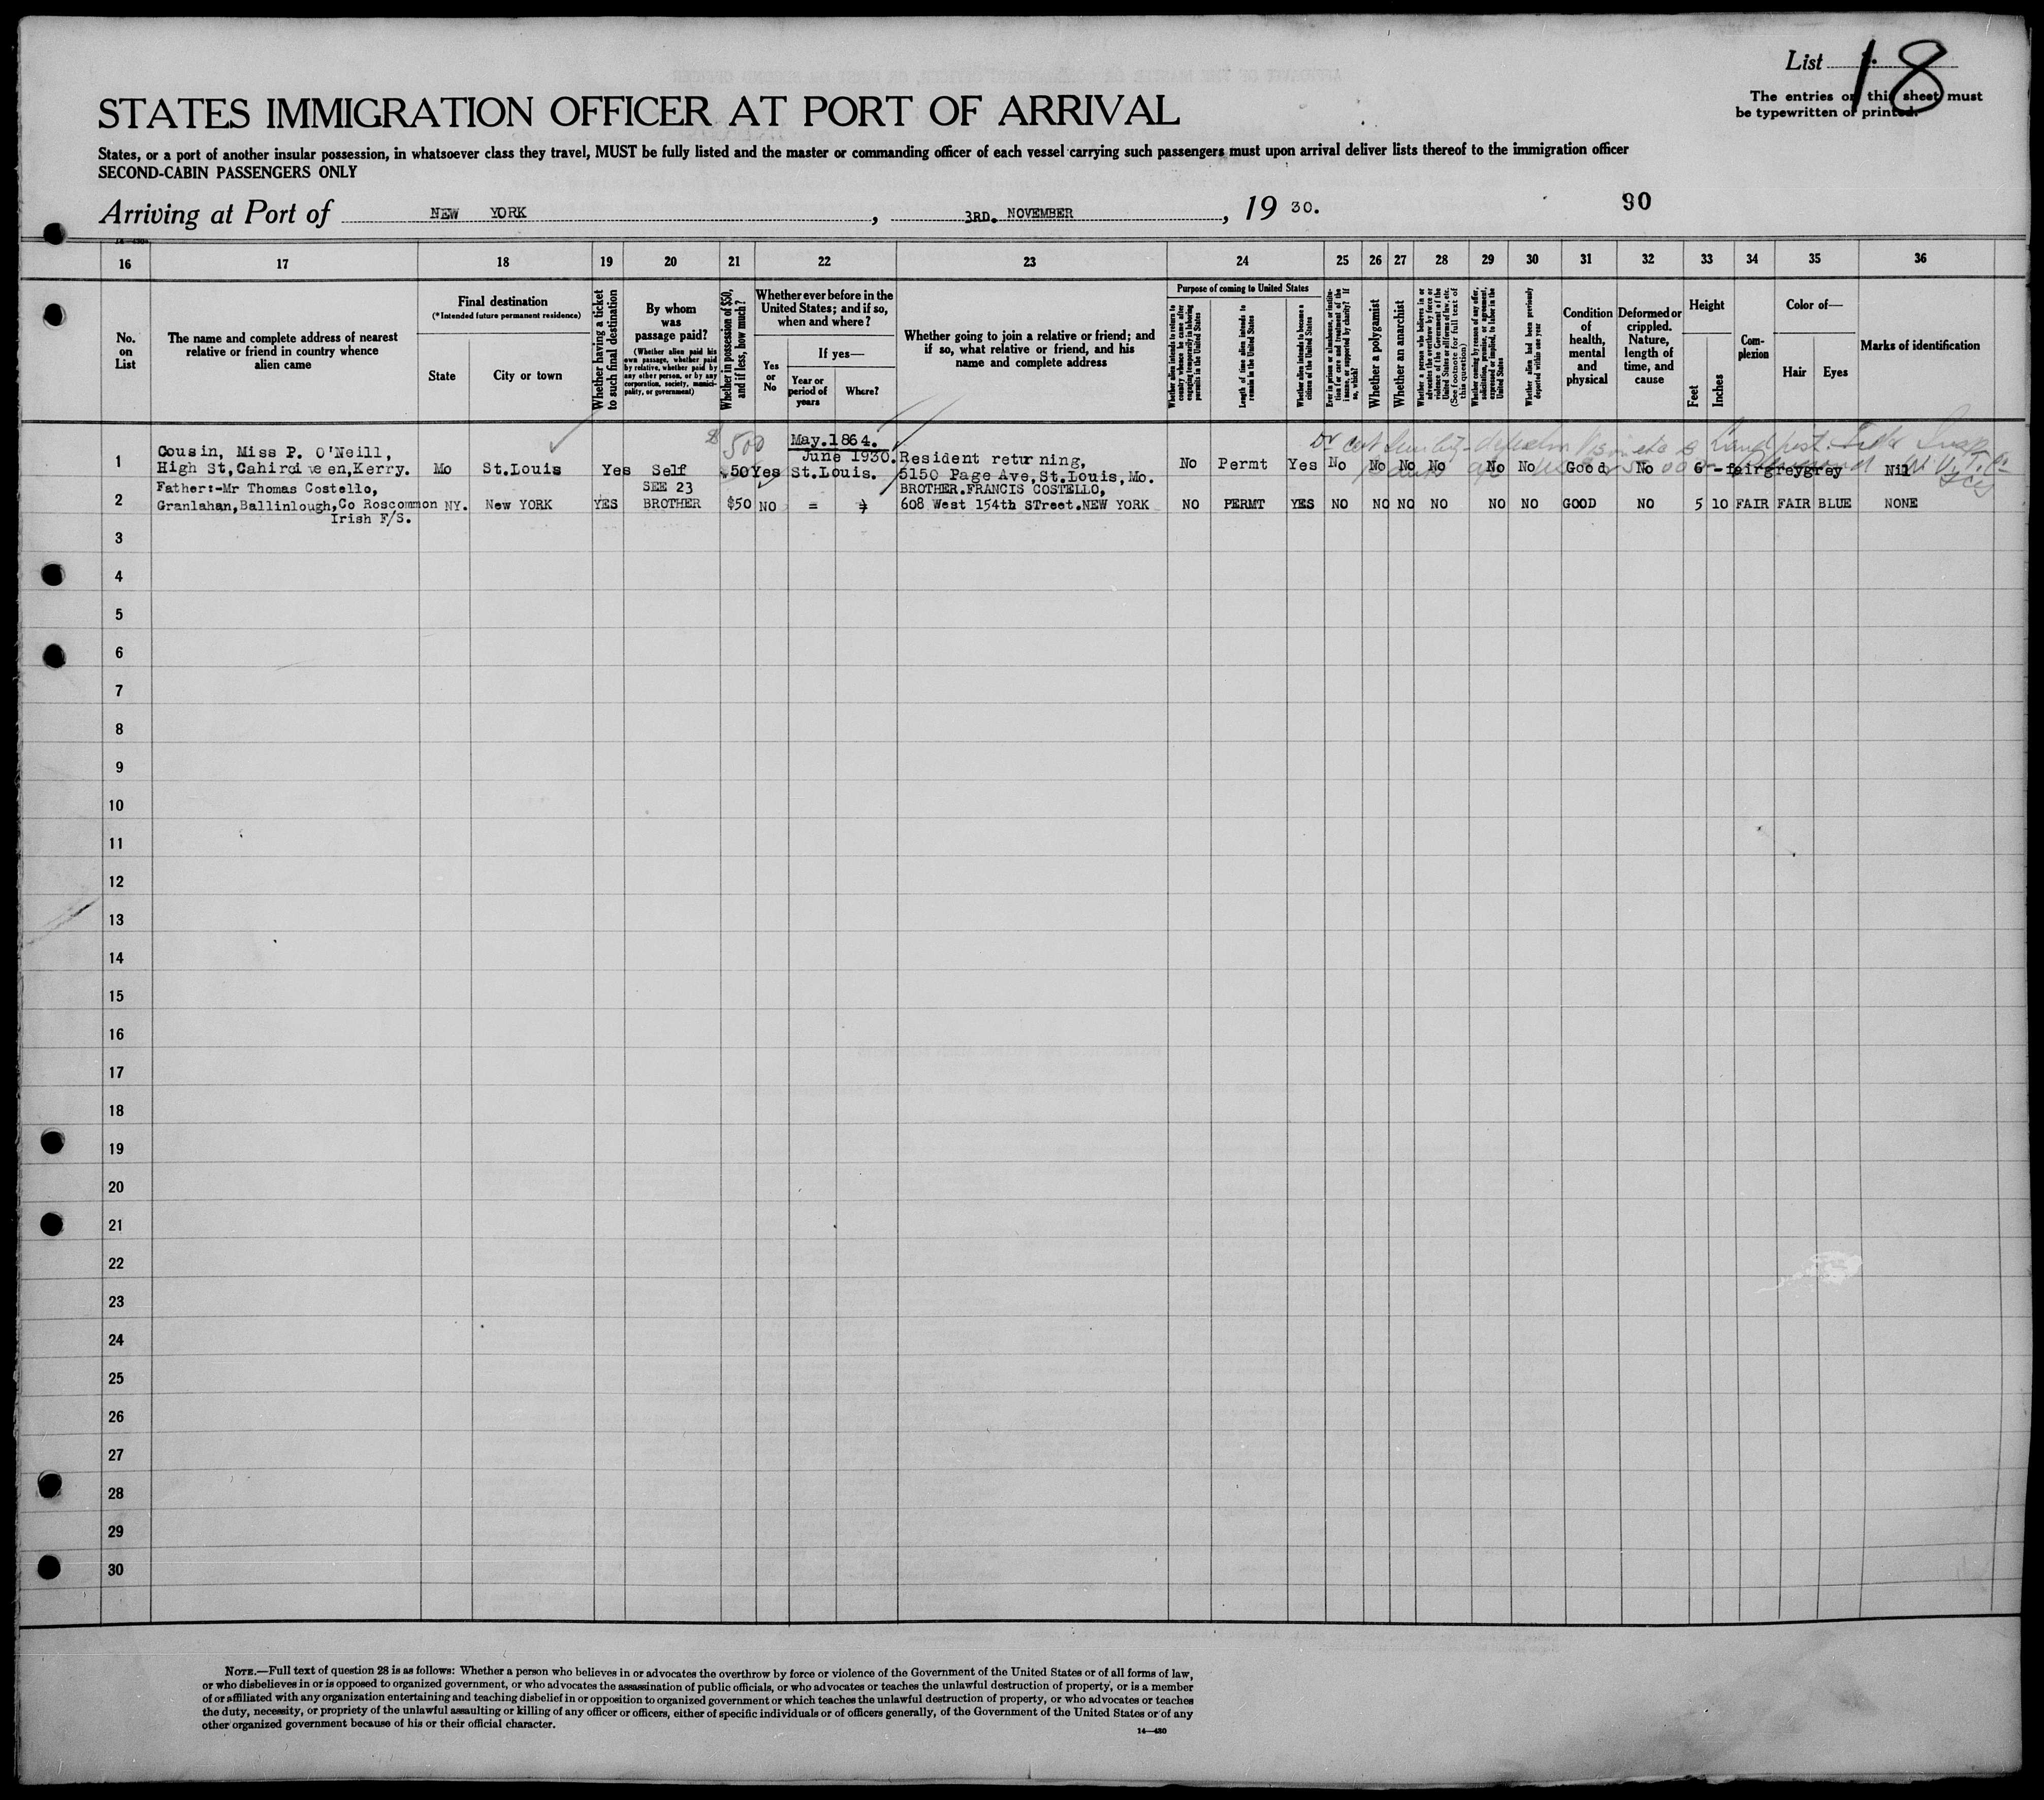 List 18
The entries on this sheet must
be typewritten or printed.
STATES IMMIGRATION OFFICER AT PORT OF ARRIVAL
States, or a port of another insular possession, in whatsoever class they travel, MUST be fully listed and the master or commanding officer of each vessel carrying such passengers must upon arrival deliver lists thereof to the immigration officer
SECOND-CABIN PASSENGERS ONLY
Arriving at Port of NEW YORK , 3RD. NOVEMBER , 19 30.
90
16 17 18 19 20 21 22 23 24 25 26 27 28 29 30 31 32 33 34 35 36
No. on List
The name and complete address of nearest
relative or friend in country whence
alien came
Final destination
(*Intended future permanent residence)
State
City or town
Whether having a ticket
to such final destination
By whom
was
passage paid?
(Whether alien paid his
own passage, whether paid
by relative, whether paid by
any other person, or by any
corporation, society, munici-
pality, or government)
Whether in possession of $50,
and if less, how much?
Whether ever before in the
United States; and if so,
when and where?
Yes
or
No
If yes—
Year or
period of
years
Where?
Whether going to join a relative or friend; and
if so, what relative or friend, and his
name and complete address
Purpose of coming to United States
Whether alien intends to return to
country whence he came after
engaging temporarily in laboring
pursuits in the United States
Length of time alien intends to
remain in the United States
Whether alien intends to become a
citizen of the United States
Ever in prison or almshouse, or institu-
tion for care and treatment of the
insane, or supported by charity? If
so, which?
Whether a polygamist
Whether an anarchist
Whether a person who believes in or
advocates the overthrow by force or
violence of the Government of the
United States or all forms of law, etc.
(See footnote for full text of
this question)
Whether coming by reason of any offer,
solicitation, promise, or agreement,
expressed or implied, to labor in the
United States
Whether alien had been previously
deported within one year
Condition
of
health,
mental
and
physical
Deformed or
crippled.
Nature,
length of
time, and
cause
Height
Feet
Inches
Com-
plexion
Color of—
Hair
Eyes
Marks of identification
1
Cousin, Miss P. O'Neill,
High St,Cahirciveen,Kerry.
Mo St.Louis Yes Self $50 500 Yes
May.1864.
June 1930.
St.Louis.
Resident returning,
5150 Page Ave,St.Louis,Mo.
No Permt Yes No No No No No No Good No 6 - fair grey grey Nil
2
Father:-Mr Thomas Costello,
Granlahan,Ballinlough,Co Roscommon
Irish F/S.
NY. New YORK YES
SEE 23
BROTHER
$50 NO = =
BROTHER.FRANCIS COSTELLO,
608 West 154th STreet.NEW YORK
NO PERMT YES NO NO NO NO NO NO GOOD NO 5 10 FAIR FAIR BLUE NONE
3
4
5
6
7
8
9
10
11
12
13
14
15
16
17
18
19
20
21
22
23
24
25
26
27
28
29
30
NOTE.—Full text of question 28 is as follows: Whether a person who believes in or advocates the overthrow by force or violence of the Government of the United States or of all forms of law,
or who disbelieves in or is opposed to organized government, or who advocates the assassination of public officials, or who advocates or teaches the unlawful destruction of property, or is a member
of or affiliated with any organization entertaining and teaching disbelief in or opposition to organized government or which teaches the unlawful destruction of property, or who advocates or teaches
the duty, necessity, or propriety of the unlawful assaulting or killing of any officer or officers, either of specific individuals or of officers generally, of the Government of the United States or of any
other organized government because of his or their official character.
14—430